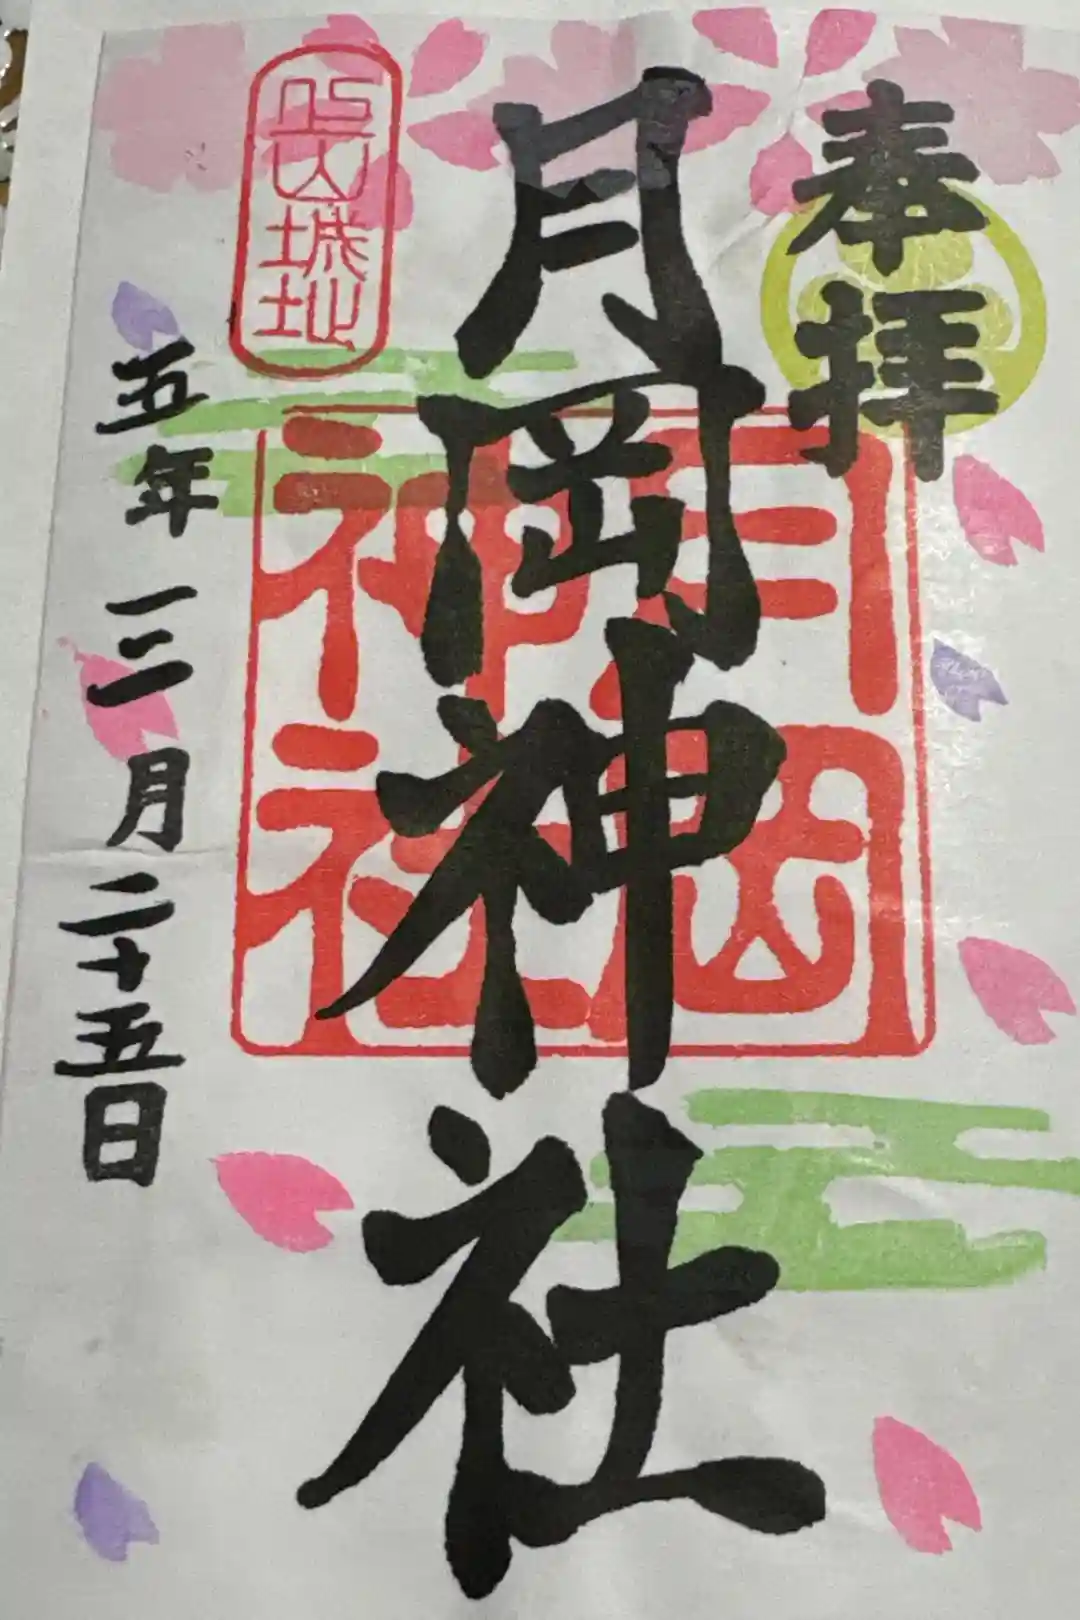 奉拝
月岡神社
月岡
神社
五年三月二十五日